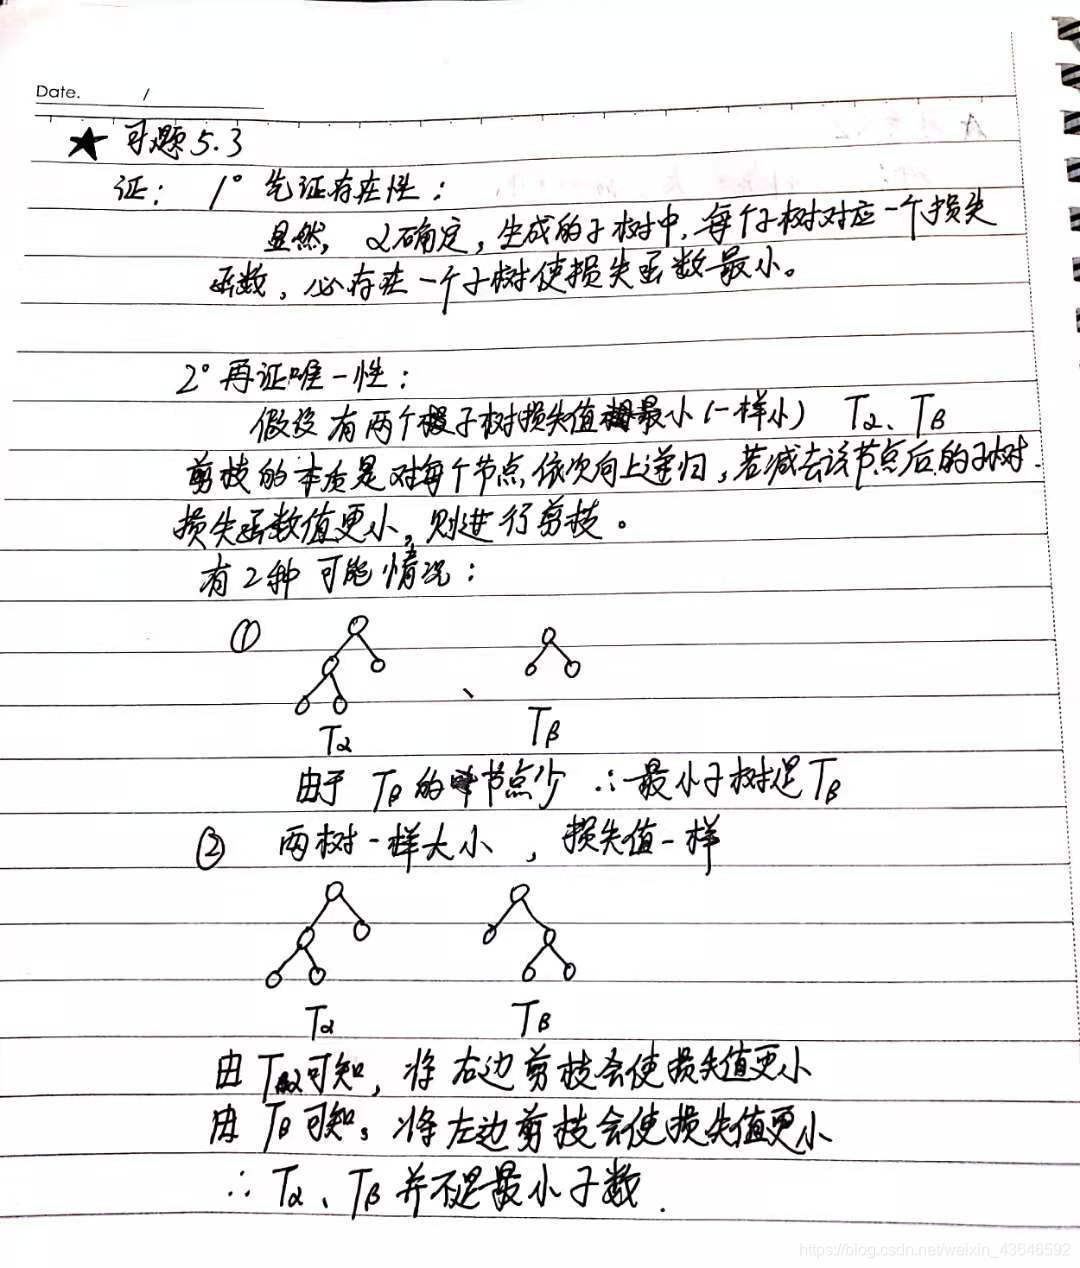 Date. /
★ 习题5.3
证: 1° 先证存在性:
显然, α确定, 生成的子树中, 每个子树对应一个损失
函数, 必存在一个子树使损失函数最小。
2° 再证唯一性:
假设有两个子树损失值最小(一样小) Tα、Tβ
剪枝的本质是对每个节点,依次向上递归,若减去该节点后的子树
损失函数值更小,则进行剪枝。
有2种可能情况:
① 、
Tα Tβ
由于 Tβ的节点少 ∴最小子树是Tβ
② 两树一样大小 , 损失值一样
Tα Tβ
由 Tα可知, 将右边剪枝会使损失值更小
由 Tβ可知, 将左边剪枝会使损失值更小
∴ Tα、Tβ并不是最小子数.
https://blog.csdn.net/weixin_43646592